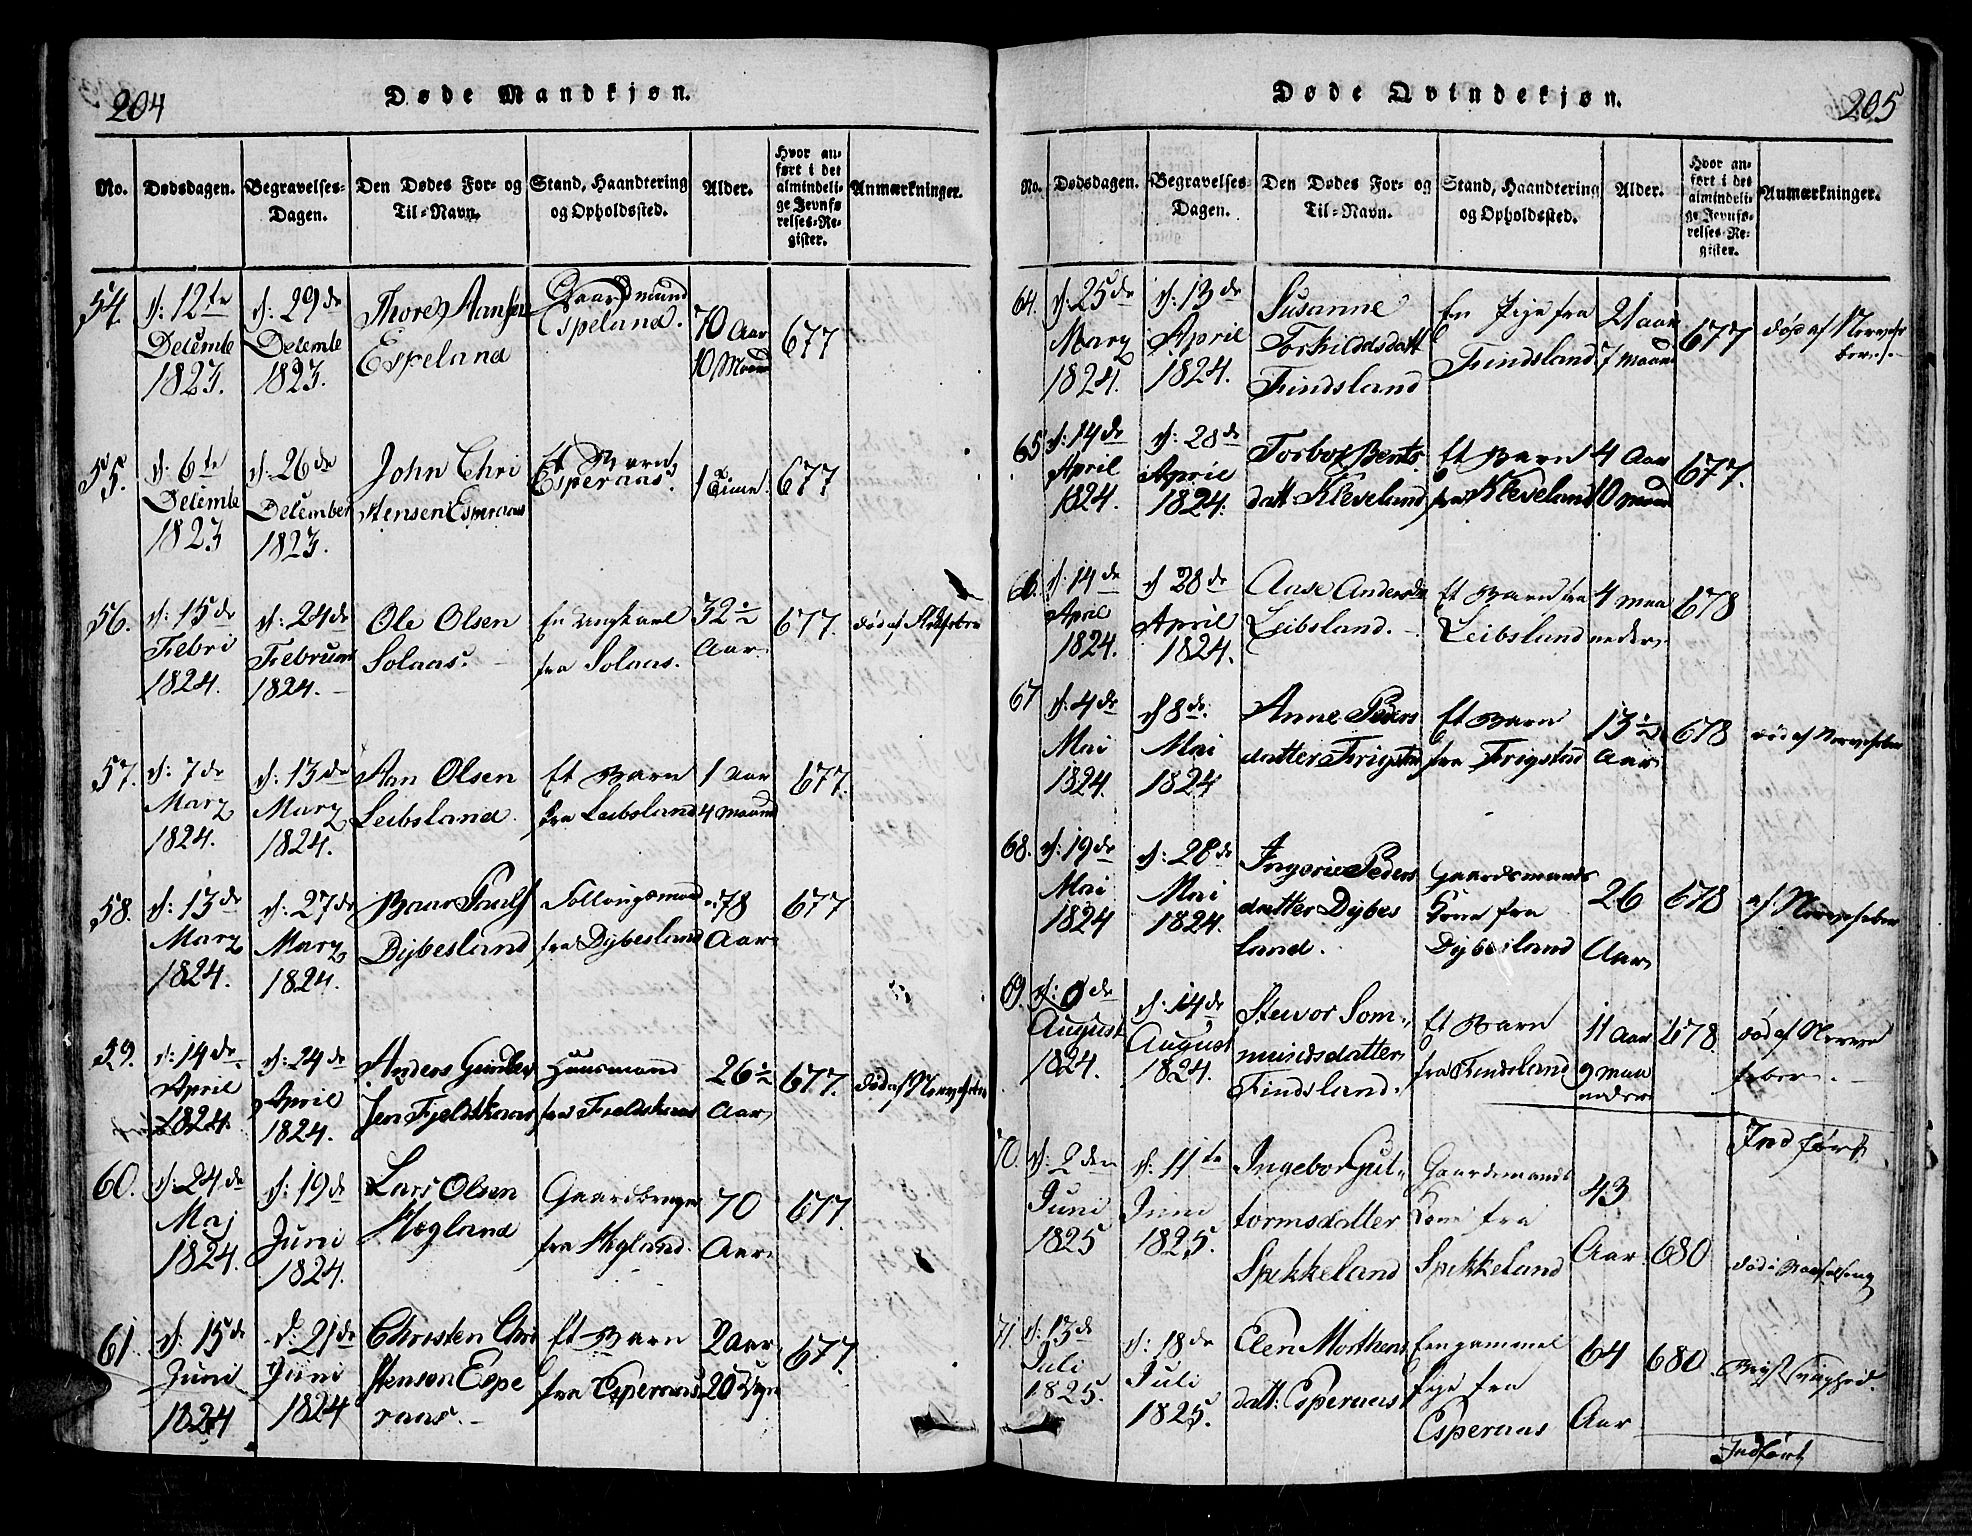 204
Døde Mandkjøn.
No. Dødsdagen. Begravelses-Dagen. Den Dødes For- og Til-Navn. Stand, Haandtering og Opholdssted. Alder. Hvor anført i det almindelige Jevnførelses-Register. Anmærkninger.
54. d: 12te Decembr 1823. d: 29de Decembr 1823. Thore Aansen Espeland Gaardmand Espeland. 70 Aar 10 Maan 677
55. d: 6te Decembr 1823 d: 26de December 1823. John Christensen Esperaas Et Barn Esperaas. 1 Time. 677
56. d: 15de Febri 1824. d: 24de Februari 1824. Ole Olsen Solaas. En Ungkarl fra Solaas. 32½ Aar. 677. død af
57. d: 7de Marz 1824. d: 13de Marz 1824. Aan Olsen Leibsland Et Barn fra Leibsland 1 Aar 4 Maand 677.
58. d: 13de Marz 1824. d: 27de Marz 1824. Dybesland fra Dybesland 78 Aar 677
59. d: 14de April 1824. d: 24de April 1824. Anders Fjeldskaar Huusmand fra Fjeldskaar 26½ Aar 677. død af Nervefeber
60. d: 24de Maj 1824. d: 19de Juni 1824. Lars Olsen Høgland Gaardbruger fra Høgland. 70 Aar 677.
61 d: 15de Juni 1824 d: 21de Juni 1824 Christen Christensen Esperaas. Et Barn fra Esperaas 2 Aar 20 Uger 677.
205
Døde Qvindekjøn.
No. Dødsdagen. Begravelses-Dagen. Den Dødes For- og Til-Navn. Stand, Haandtering og Opholdssted. Alder. Hvor anført i det almindelige Jevnførelses-Register. Anmærkninger.
64. d: 25de Marz 1824. d: 13de April 1824. Susanne Torkildsdatt Findsland En Pige fra Findsland 21 aar 7 Maan 677 død af Nervefeber.
65 d: 14de April 1824. d: 28de April 1824. Torbor Bentsdatt: Kleveland Et Barn fra Kleveland 4 Aar 10 Maan 677.
66. d: 14de April 1824. d 28de April 1824. Anse Andersda Leibsland. Et Barn fra Leibsland 4 Maaneder 678
67 d: 4de Mai 1824. d 8de. Mai 1824 Anne Pedersdatter Frigstad Et Barn fra Frigstad 13½ Aar 678 død af Nervefeber
68. d: 19de Mai 1824 d: 28de Mai 1824. Ingerie Pedersdatter Dybesland. Gaardsmands Kone fra Dybesland 26 Aar 678 af Nervefeber
69. d: 6de August 1824. d: 14de August 1824. Steivor Sommundsdatter Findsland. Et Barn fra Findsland 11 Aar 9 Maaneder 678. død af Nervefeber.
Indført
70. d: 2den Juni 1825 d: 11te Juni 1825. Ingebor Guttormsdatter Spikkeland Gaardsmands Kone fra Spikkeland 43 Aar 680 død i Barselseng
71. d: 13de Juli 1825. d: 18de Juli 1825. Elen Morthensdatt: Esperaas En gammel Pige fra Esperaas 64 Aar 680
Indført